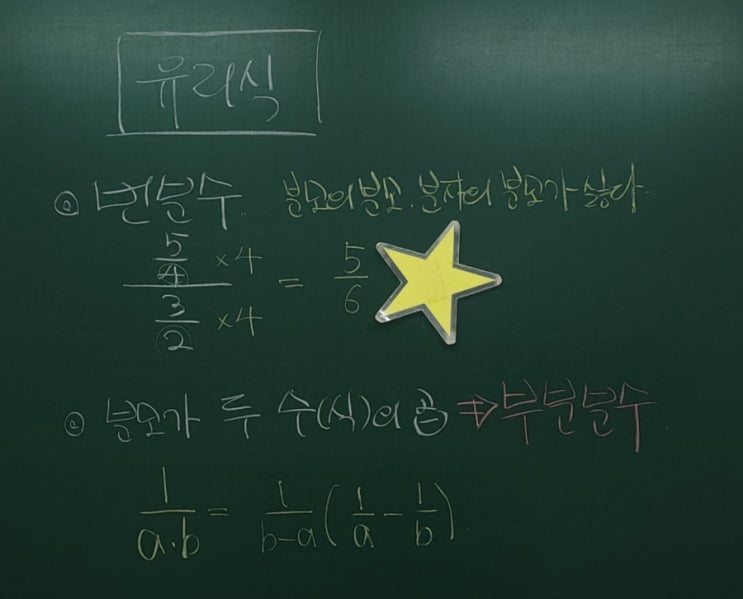 유리식
◎ 번분수. 분모의 분모. 분자의 분모가 싫다.
5/4 ×4
3/2 ×4
= 5/6
◎ 분모가 두 수(식)의 곱 ⇒ 부분분수
1/a·b = 1/b-a (1/a - 1/b)